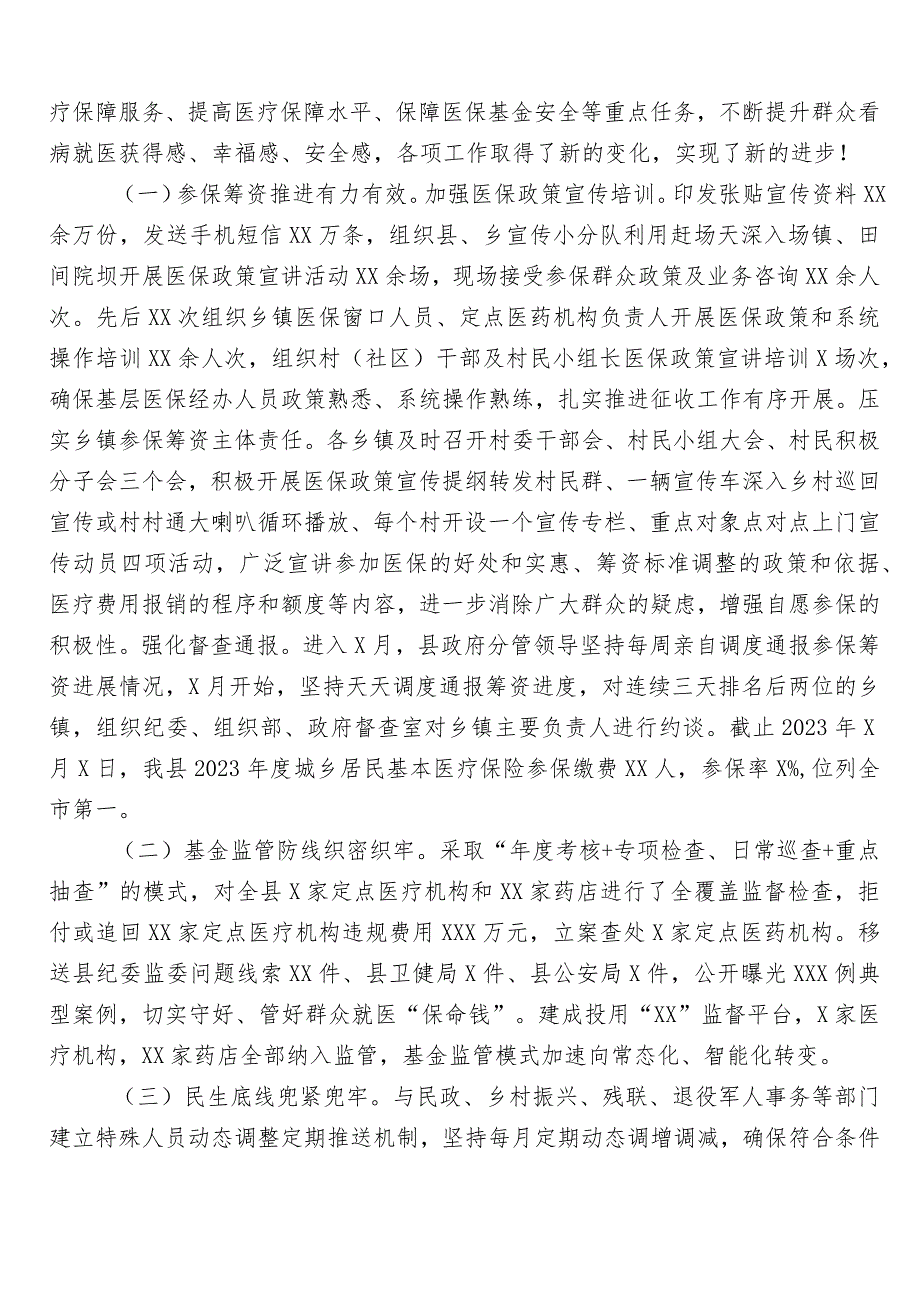 疗保障服务、提高医疗保障水平、保障医保基金安全等重点任务，不断提升群众看
病就医获得感、幸福感、安全感，各项工作取得了新的变化，实现了新的进步！
（一）参保筹资推进有力有效。加强医保政策宣传培训。印发张贴宣传资料XX
余万份，发送手机短信XX万条，组织县、乡宣传小分队利用赶场天深入场镇、田
间院坝开展医保政策宣讲活动XX余场，现场接受参保群众政策及业务咨询XX余人
次。先后XX次组织乡镇医保窗口人员、定点医药机构负责人开展医保政策和系统
操作培训XX余人次，组织村（社区）干部及村民小组长医保政策宣讲培训X场次，
确保基层医保经办人员政策熟悉、系统操作熟练，扎实推进征收工作有序开展。压
实乡镇参保筹资主体责任。各乡镇及时召开村委干部会、村民小组大会、村民积极
分子会三个会，积极开展医保政策宣传提纲转发村民群、一辆宣传车深入乡村巡回
宣传或村村通大喇叭循环播放、每个村开设一个宣传专栏、重点对象点对点上门宣
传动员四项活动，广泛宣讲参加医保的好处和实惠、筹资标准调整的政策和依据、
医疗费用报销的程序和额度等内容，进一步消除广大群众的疑虑，增强自愿参保的
积极性。强化督查通报。进入X月，县政府分管领导坚持每周亲自调度通报参保筹
资进展情况，X月开始，坚持天天调度通报筹资进度，对连续三天排名后两位的乡
镇，组织纪委、组织部、政府督查室对乡镇主要负责人进行约谈。截止2023年X
月X日，我县2023年度城乡居民基本医疗保险参保缴费XX人，参保率X%,位列全
市第一。
（二）基金监管防线织密织牢。采取“年度考核+专项检查、日常巡查+重点
抽查”的模式，对全县X家定点医疗机构和XX家药店进行了全覆盖监督检查，拒
付或追回XX家定点医疗机构违规费用XXX万元，立案查处X家定点医药机构。移
送县纪委监委问题线索XX件、县卫健局X件、县公安局X件，公开曝光XXX例典
型案例，切实守好、管好群众就医“保命钱”。建成投用“XX”监督平台，X家医
疗机构，XX家药店全部纳入监管，基金监管模式加速向常态化、智能化转变。
（三）民生底线兜紧兜牢。与民政、乡村振兴、残联、退役军人事务等部门
建立特殊人员动态调整定期推送机制，坚持每月定期动态调增调减，确保符合条件